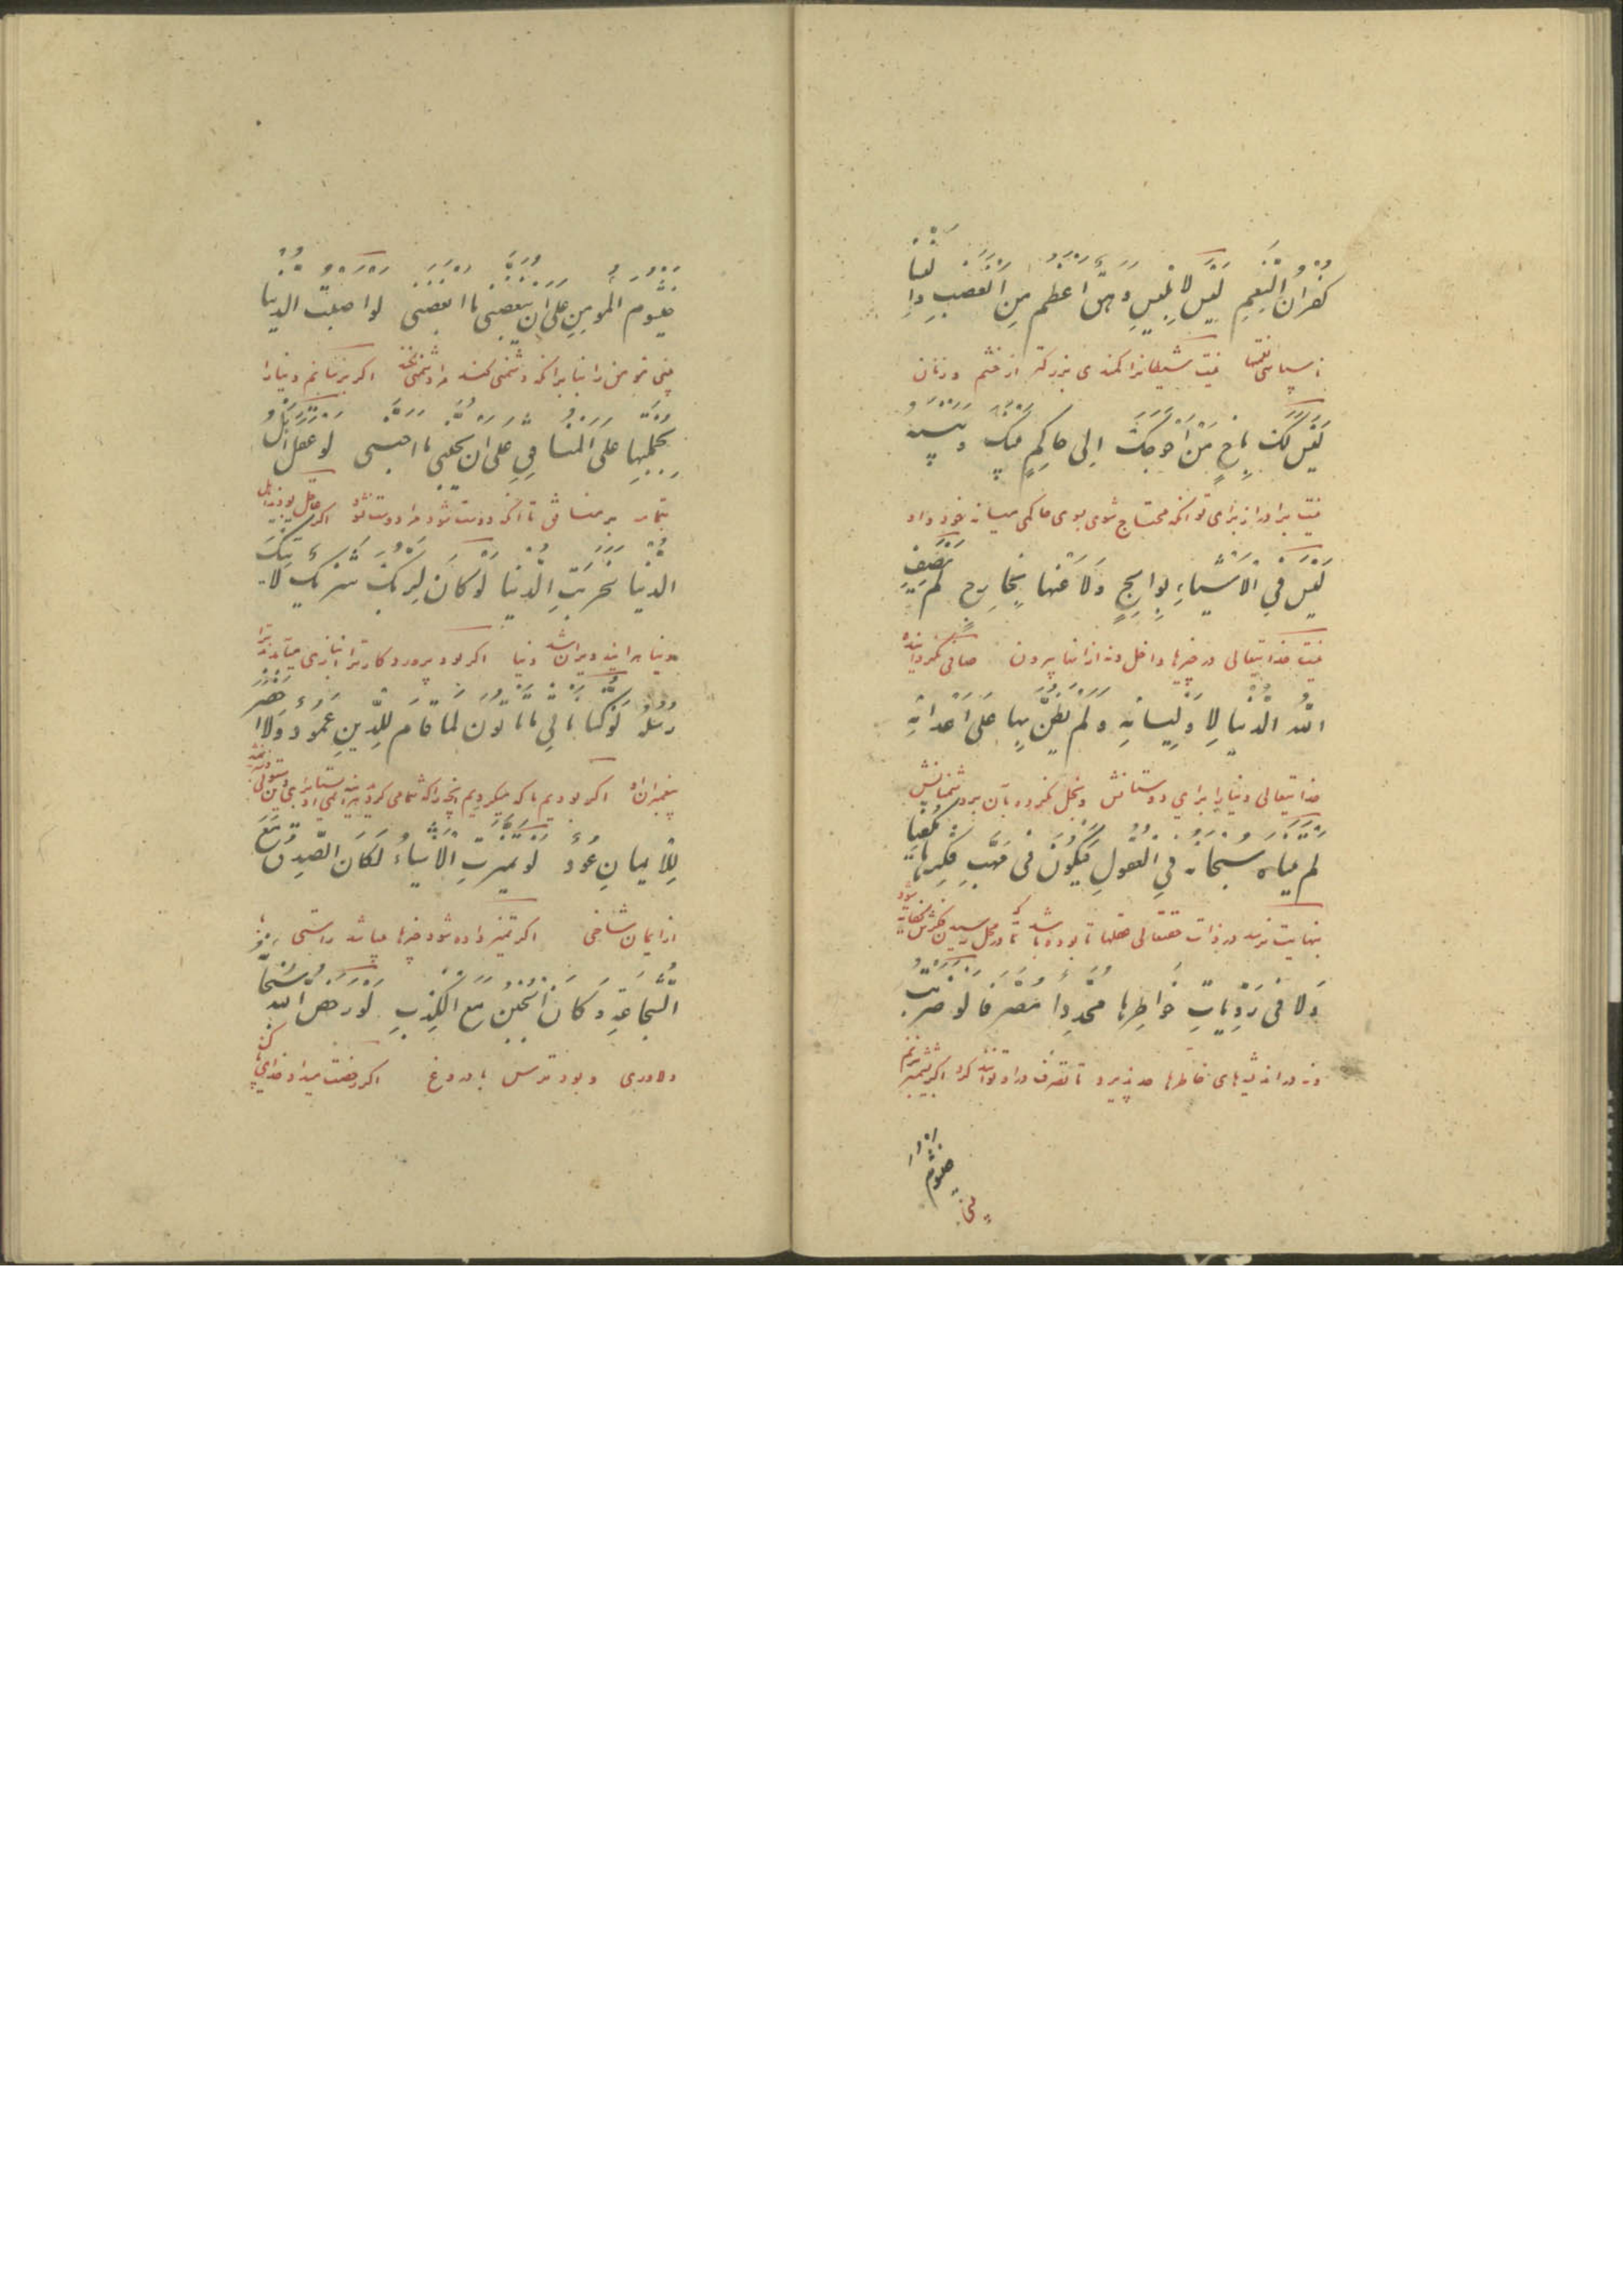 كُفْرَانُ النِّعَمِ لَيْسَ لِاِبْلِيسَ وَهَقٌ اَعْظَمُ مِنَ الْغَضَبِ وَالنِّسَا
ناسپاسی نعمتها نیست شیطانرا کمندی بزرگتر از خشم و زنان
لَيْسَ لَكَ بِاَخٍ مَنْ اَحْوَجَكَ اِلى حَاكِمٍ بَيْنَكَ وَبَيْنَهُ
نیست برادر از برای تو آنکه محتاج شوی بسوی حاکمی میانه خود و او
لَيْسَ فِي الْاَشْيَاءِ بِوَالِجٍ وَلَا عَنْهَا بِخَارِجٍ لَمْ يُصَفِّ
نیست خدایتعالی در چیزها داخل و نه از آنها بیرون صافی نگردانیده
اللهُ الدُّنْيَا لِاَوْلِيَائِهِ وَلَمْ يَضِنَّ بِهَا عَلَى اَعْدَائِهِ
خدایتعالی دنیا را برای دوستانش و بخل نکرده بآن بر دشمنانش
لَمْ يَتَنَاهَ سُبْحَانَهُ فِي الْعُقُولِ فَيَكُونَ فِي مَهَبِّ فِكْرِهَا مُكَيَّفًا
بنهایت نرسد در ذات حقتعالی عقلها تا بوده باشد که در محل رسیدن فکرش
وَلَا فِي رَوِيَّاتِ خَوَاطِرِهَا مُحَدَّدًا مُصَرَّفًا لَوْ ضَرَبْتُ
و نه در اندیشهای خاطرها حد پذیرد تا تصرف در او توانند کرد اگر بشمشیر بزنم
خَيْشُومَ
بینی
خَيْشُومَ الْمُؤْمِنِ عَلَى اَنْ يُبْغِضَنِي مَا اَبْغَضَنِي لَوْ صَبَبْتُ الدُّنْيَا
بینی مؤمن را بنا بر آنکه دشمنی کند مرا دشمنی نکند اگر بریزانم دنیا را
بِجُمْلَتِهَا عَلَى الْمُنَافِقِ عَلَى اَنْ يُحِبَّنِي مَا اَحَبَّنِي لَوْ عَقَلَ اَهْلُ
بتمامه بر منافق تا آنکه دوست شود مرا دوست نشود اگر عاقل بودند اهل
الدُّنْيَا لَخَرِبَتِ الدُّنْيَا لَوْ كَانَ لِرَبِّكَ شَرِيكٌ لَاَتَتْكَ
دنیا هر آینه ویران شد دنیا اگر بود پروردگار ترا انبازی میآمدند ترا
رُسُلُهُ لَوْ كُنَّا نَأْتِي مَا تَأْتُونَ لَمَا قَامَ لِلدِّينِ عَمُودٌ وَلَا اخْضَرَّ
پیغمبران او اگر بودیم ما که میکردیم آنچه را که شما می کردید
لِلْاِيمَانِ عُودٌ لَوْ تَمَيَّزَتِ الْاَشْيَاءُ لَكَانَ الصِّدْقُ مَعَ
از ایمان شاخی اگر تمیز داده شود چیزها میباشد راستی با
الشَّجَاعَةِ وَكَانَ الْجُبْنُ مَعَ الْكِذْبِ لَوْ رَخَّصَ اللهُ سُبْحَانَهُ
دلاوری و بود ترس با دروغ اگر رخصت میداد خدای